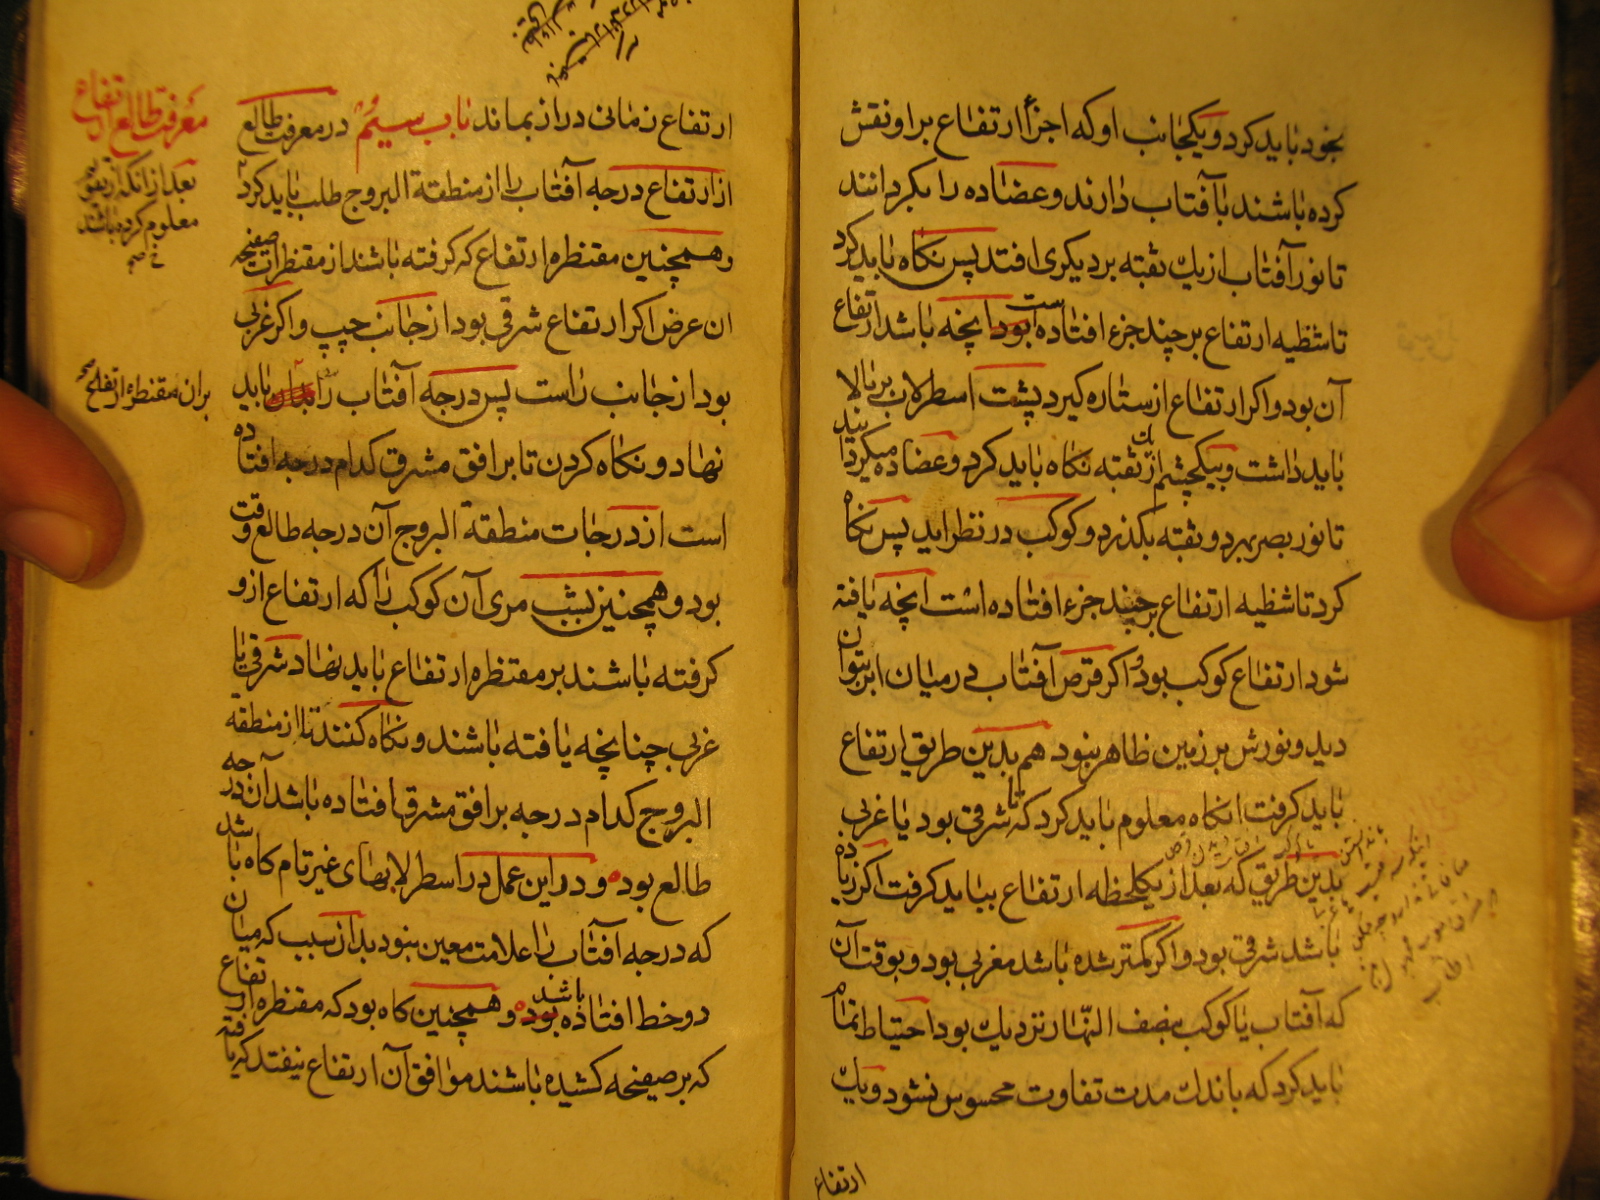 بخود باید کرد و یکجانب او که اجزأ ارتفاع براو نقش
کرده باشند باآفتاب دارند و عضاده را بکردانند
تا نور آفتاب از یك ثقبه بر دیکری افتد پس نکاه باید کرد
تا شظیه ارتفاع بر چند جزء افتاده است بود انچه باشد ارتفاع
آن بود و اکر ارتفاع از ستاره کیرد پشت اسطرلاب بر بالا
باید داشت و بیکچشم از یك ثقبه نکاه باید کرد و عضاده میکردانید
تا نور بصر بهر دو ثقبه بکذرد و کوکب در نظر اید پس نکاه
کرد تا شظیه ارتفاع بر چند جزء افتاده است انچه یافته
شود ارتفاع کوکب بود و اکر قرص آفتاب در میان ابر بتوان
دید و نورش بر زمین ظاهر نبود هم بدین طریق ارتفاع
باید کرفت انکاه معلوم باید کرد که تا شرقی بود یا غربی
بدین طریق که بعد از یکلحظه ارتفاع بباید کرفت اکر زیاده
باشد شرقی بود و اکر کمتر شده باشد مغربی بود و بوقت آن
که آفتاب یا کوکب بنصف النهار نزدیك بود احتیاط تمام
باید کرد که باندك مدت تفاوت محسوس نشود و یك
ارتفاع
ارتفاع زمانی دراز بماند باب سیُم در معرفت طالع
از ارتفاع درجه آفتاب را از منطقة البروج طلب باید کرد
و همچنین مقنطره ارتفاع که کرفته باشند از مقنطرات صفیحه
ان عرض اکر ارتفاع شرقی بود از جانب چپ و اکر غربی
بود از جانب راست پس درجه آفتاب را باید
نهاد و نکاه کردن تا بر افق مشرق کدام درجه افتاده
است از درجات منطقة البروج آن درجه طالع وقت
بود و همچنین بشب مری آن کوکب را که ارتفاع ازو
کرفته باشند بر مقنطره ارتفاع باید نهاد شرقی یا
غربی چنانچه یافته باشند و نکاه کنند تا از منطقه
البروج کدام درجه بر افق مشرق افتاده باشد آن درجه
طالع بود و در این عمل در اسطرلابهای غیر تام کاه باشد
که درجه آفتاب را علامت معین نبود بدان سبب که میان
دو خط افتاده باشد بود و همچنین کاه بود که مقنطره ارتفاع
که بر صفیحه کشیده باشند موافق آن ارتفاع نیفتد که یافته
معرفت طالع از ارتفاع
بعد از آنکه از تقویم
معلوم کرده باشند
بران مقنطرهٔ ارتفاع